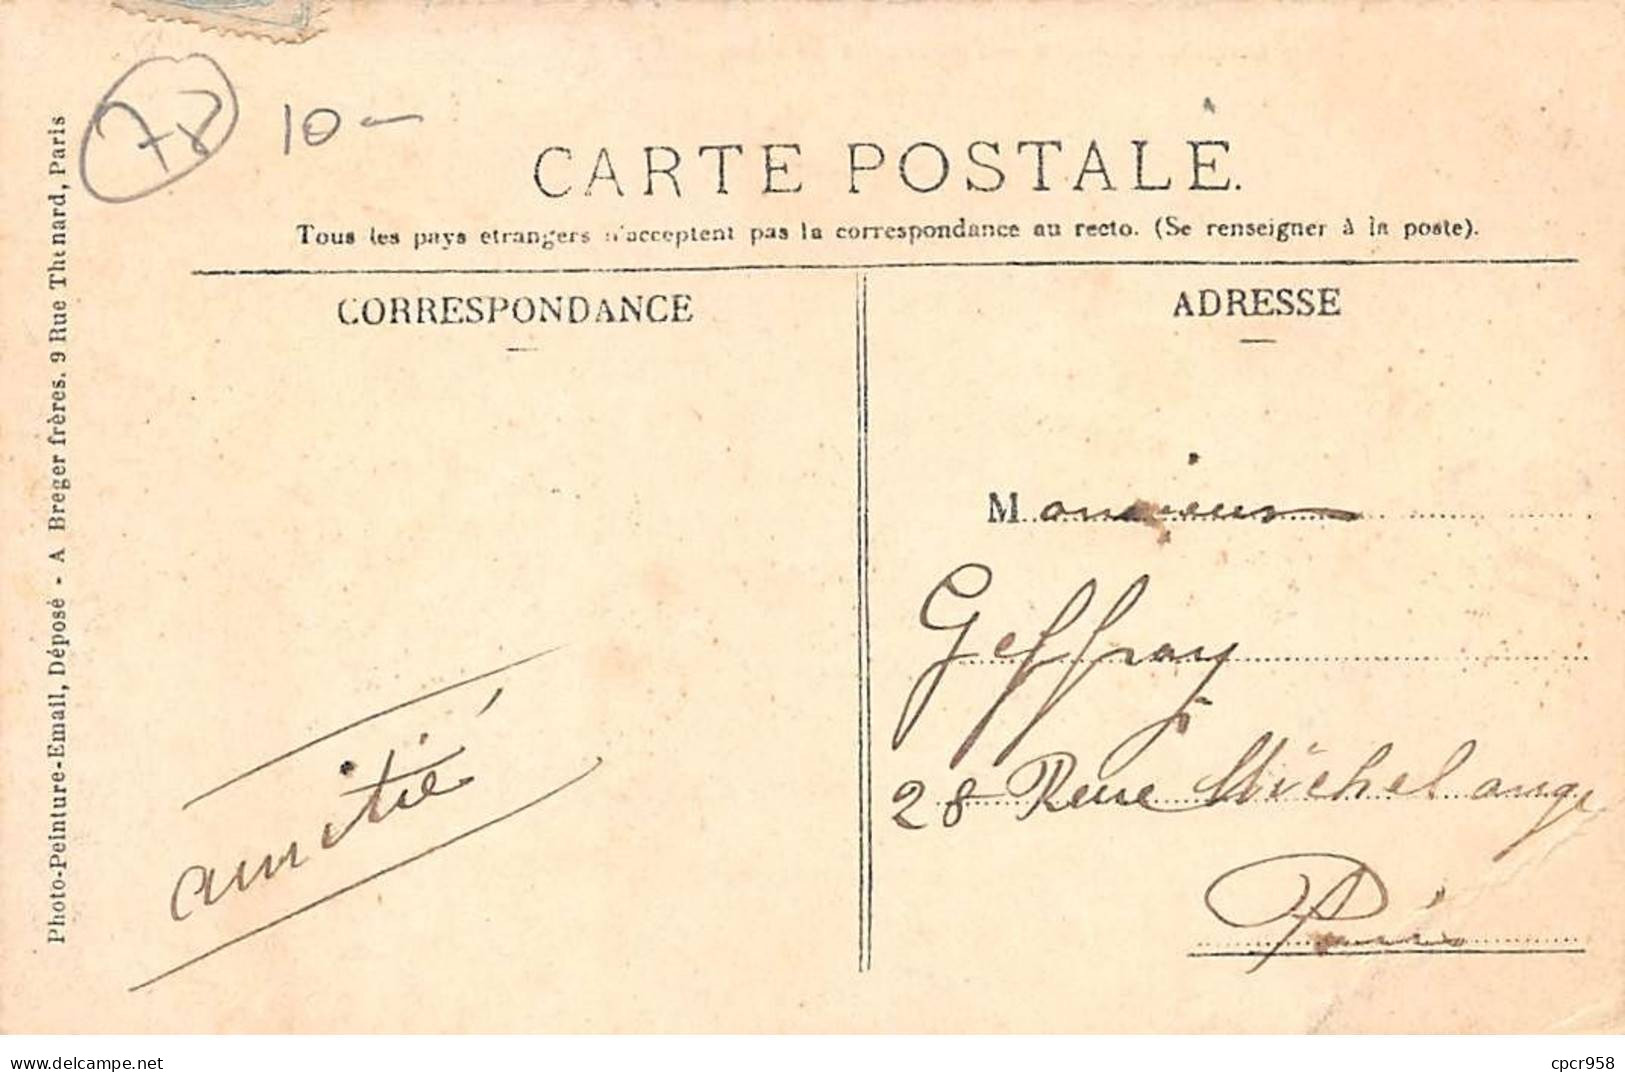 78
10 -
CARTE POSTALE.
Tous les pays etrangers n'acceptent pas la correspondance au recto. (Se renseigner à la poste).
CORRESPONDANCE
ADRESSE
Monsieur
Geffray
28 Rue Michel ange
Paris
amitié
Photo-Peinture-Email, Déposé - A Breger frères. 9 Rue Thenard, Paris
www.delcampe.net
cpcr958